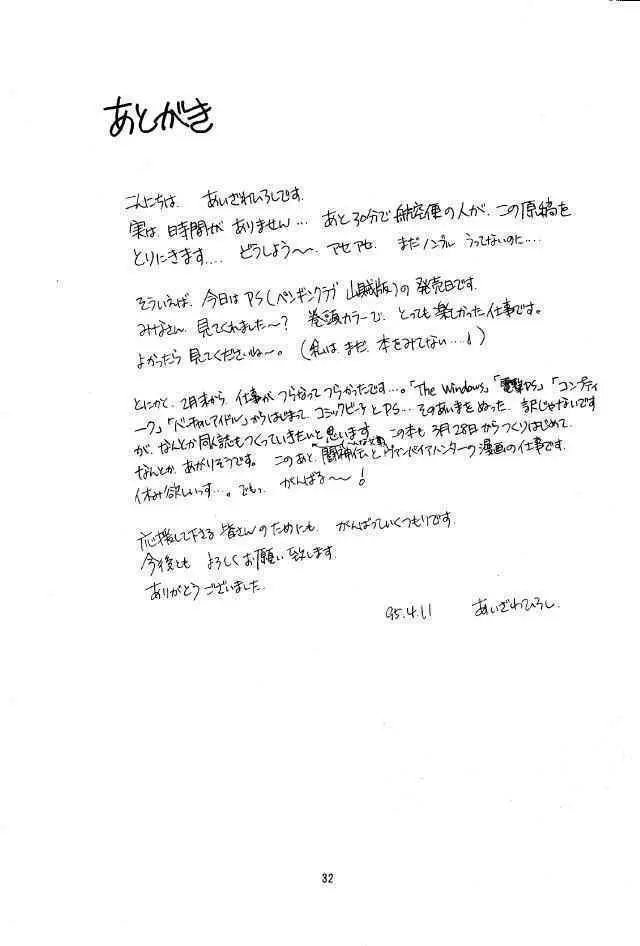 あとがき
こんにちは あいざわひろしです.
実は 時間が ありません… あと30分で 航空便の人が、この原稿を
とりにきます…. どうしよう〜. アセアセ. まだノンブル うってないのに….
そういえば、今日は PS(ペンギンクラブ 山賊版)の 発売日です.
みなさん、見てくれました〜? 巻頭カラーで、とっても 楽しかった仕事です。
よかったら 見てくださいね〜。 (私は、まだ、本をみてない….!)
とにかく、2月末から、仕事が つらなって つらかったです…。「The Windows」「電撃PS」「コンプティ
ーク」「バーチャルアイドル」からはじまって コミックピ子とPS… そのあいまをぬった 訳じゃないです
が、なんとか同人誌もつくっていきたいと思います. この本も 3月28日からつくりはじめて.
なんとか、あがりそうです。 このあと、闘神伝とヴァンパイアハンターの漫画の仕事です.
休み欲しいっす…。でもっ がんばる〜!
応援して下さる 皆さんのためにも、がんばっていくつもりです.
今後とも よろしくお願い致します.
ありがとうございました.
95.4.11 あいざわひろし.
32